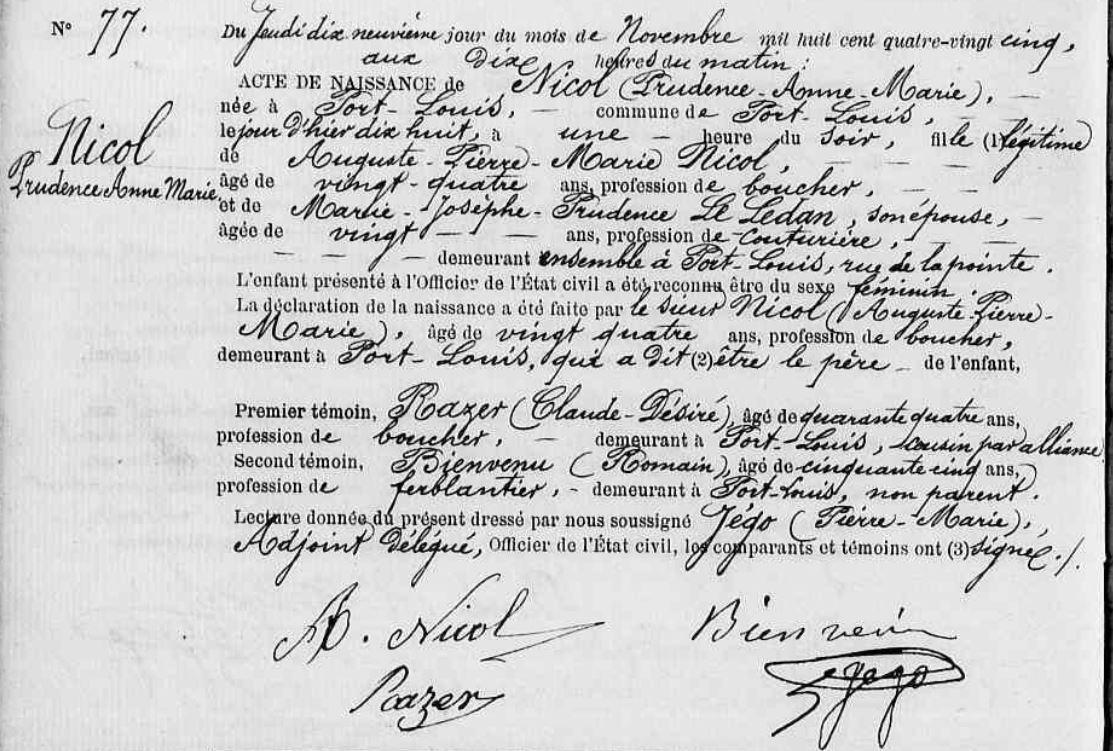 N° 77.
Du Jeudi dix neuvième jour du mois de Novembre mil huit cent quatre-vingt cinq,
aux Dix heures du matin :
ACTE DE NAISSANCE de Nicol (Prudence-Anne-Marie), —
née à Port-Louis, — commune de Port-Louis, —
le jour d'hier dix huit, à une — heure du soir, fille (1) légitime
de Auguste-Pierre-Marie Nicol, — — —
âgé de vingt-quatre ans, profession de boucher, — —
et de Marie-Josèphe-Prudence Le Ledan, son épouse, —
âgée de vingt — — ans, profession de couturière, — —
— — — demeurant ensemble à Port-Louis, rue de la pointe.
Nicol
Prudence Anne Marie
L'enfant présenté à l'Officier de l'État civil a été reconnu être du sexe féminin.
La déclaration de la naissance a été faite par le sieur Nicol (Auguste-Pierre-
Marie), âgé de vingt quatre ans, profession de boucher,
demeurant à Port-Louis, qui a dit (2) être le père — de l'enfant,
Premier témoin, Razer (Claude-Désiré), âgé de quarante quatre ans,
profession de boucher, — demeurant à Port-Louis, cousin par alliance
Second témoin, Bienvenu (Romain), âgé de cinquante cinq ans,
profession de ferblantier, - demeurant à Port-Louis, non parent.
Lecture donnée du présent dressé par nous soussigné Jégo (Pierre-Marie),
Adjoint Délégué, Officier de l'État civil, les comparants et témoins ont (3) signé ./.
A. Nicol
Bienvenu
Razer
Jego